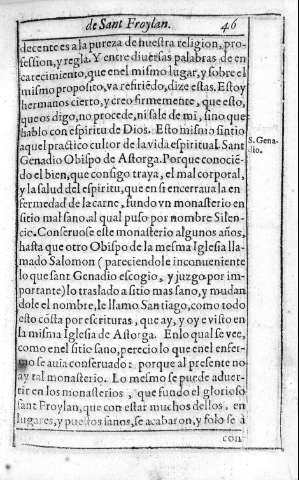 de Sant Froylan. 46
decente es a la pureza de nuestra religion, pro-
fession, y regla. Y entre diuersas palabras de en
carecimiento, que en el mismo lugar, y sobre el
mismo proposito, va refiriēdo, dize estas. Estoy
hermanos cierto, y creo firmemente, que esto,
que os digo, no procede, ni sale de mi, sino que
hablo con espiritu de Dios. Esto mismo sintio
aquel practico cultor de la vida espiritual Sant
Genadio Obispo de Astorga. Porque conocié-
do el bien, que consigo traya, el mal corporal,
y la salud del espiritu, que en si encerraua la en
fermedad de la carne, fundo vn monasterio en
sitio mal sano, al qual puso por nombre Silen-
cio. Conseruose este monasterio algunos años,
hasta que otro Obispo de la mesma Iglesia lla-
mado Salomon (pareciendole inconueniente
lo que sant Genadio escogio, y juzgo por im-
portante) lo traslado a sitio mas sano, y mudan
dole el nombre, le llamo Santiago, como todo
esto cósta por escrituras, que ay, y oy e visto en
la misma Iglesia de Astorga. En lo qual se vee,
como en el sitio sano, perecio lo que en el enfer-
mo se auia conseruado: porque al presente no
ay tal monasterio. Lo mesmo se puede aduer-
tir en los monasterios, que fundo el glorioso
sant Froylan, que con estar muchos dellos, en
lugares, y puestos sanos, se acabaron, y solo se à
con-
S. Gena-
dio.